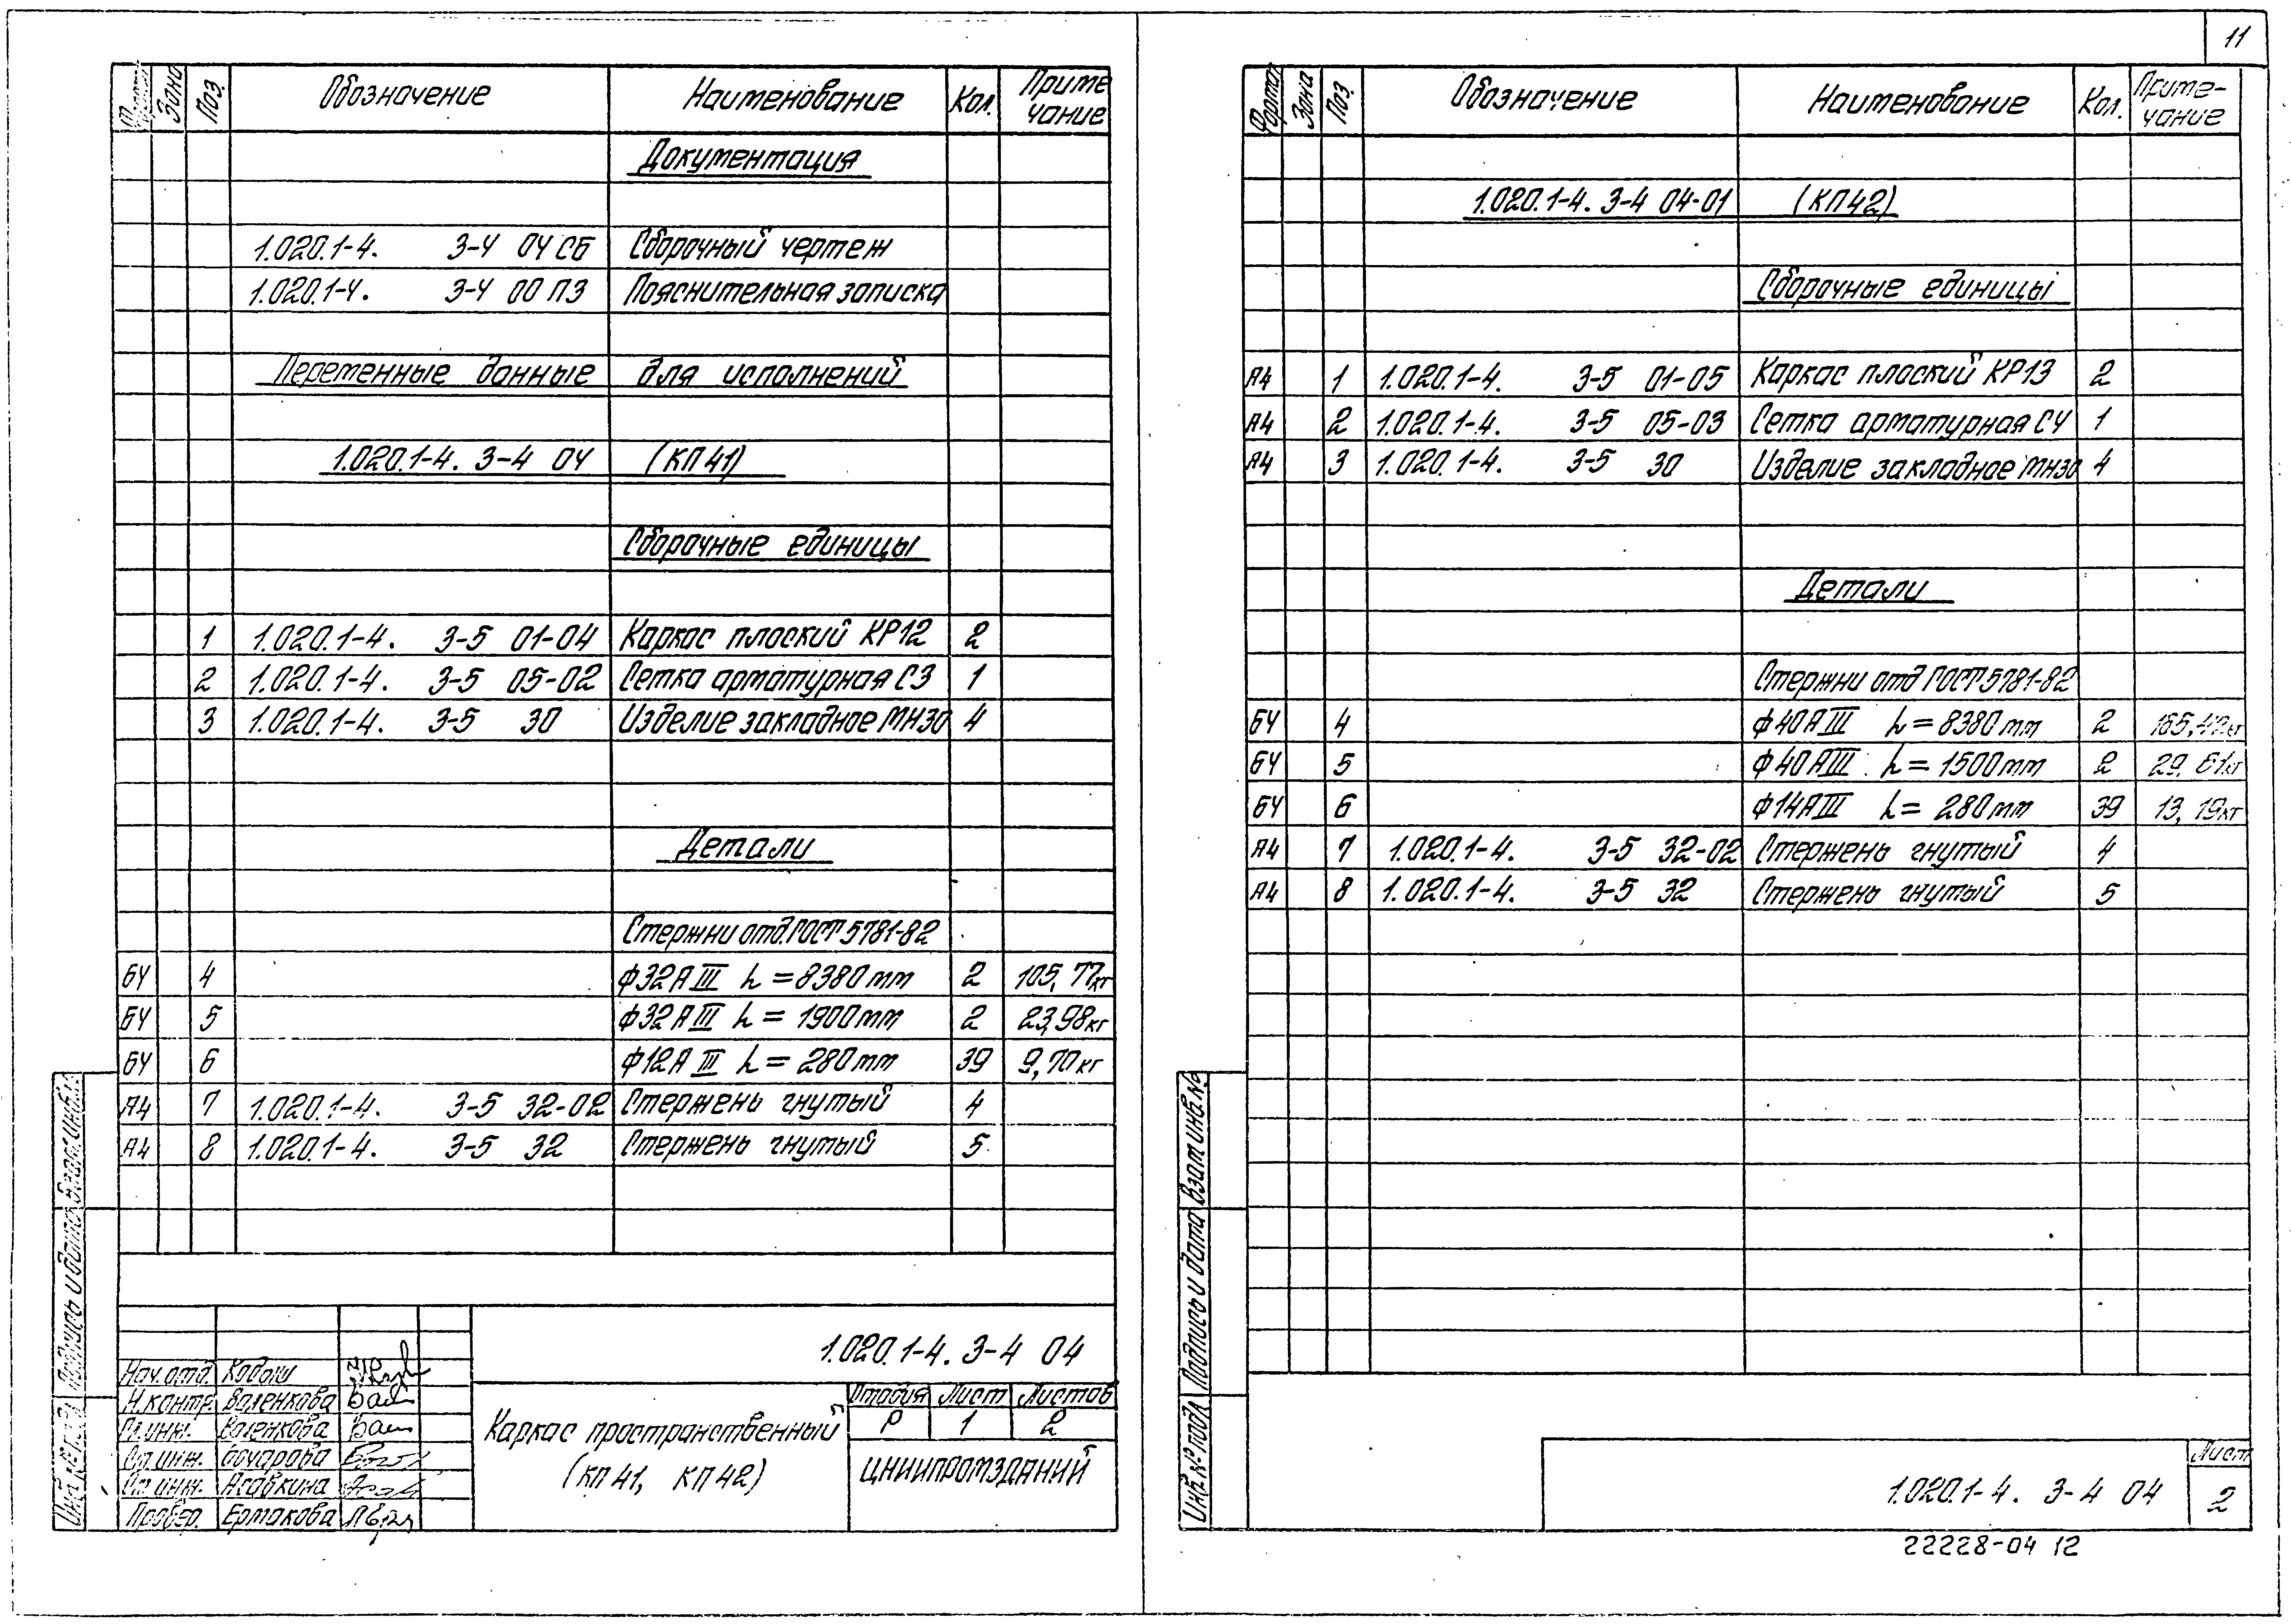 11
Формат Зона Поз. Обозначение Наименование Кол. Приме чание
Документация
1.020.1-4. 3-4 04 СБ Сборочный чертеж
1.020.1-4. 3-4 00 ПЗ Пояснительная записка
Переменные данные для исполнений
1.020.1-4. 3-4 04 (КП41)
Сборочные единицы
1 1.020.1-4. 3-5 01-04 Каркас плоский КР12 2
2 1.020.1-4. 3-5 05-02 Сетка арматурная С3 1
3 1.020.1-4. 3-5 30 Изделие закладное МН30 4
Детали
Стержни отд. ГОСТ 5781-82
БЧ 4 ф32АIII L=8380mm 2 105,77кг
БЧ 5 ф32АIII L=1900mm 2 23,98кг
БЧ 6 ф12АIII L=280mm 39 9,70кг
А4 7 1.020.1-4. 3-5 32-02 Стержень гнутый 4
А4 8 1.020.1-4. 3-5 32 Стержень гнутый 5
1.020.1-4. 3-4 04
Нач.отд.
Н.контр. Валенкова
Гл.инж. Валенкова
Ст.инж. Бочарова
Ст.инж. Асавкина
Провер. Ермакова
Каркас пространственный
(КП41, КП42)
Стадия Лист Листов
Р 1 2
ЦНИИПРОМЗДАНИЙ
Инв.№ подл. Подпись и дата Взам.инв.№
Формат Зона Поз. Обозначение Наименование Кол. Приме-чание
1.020.1-4. 3-4 04-01 (КП42)
Сборочные единицы
А4 1 1.020.1-4. 3-5 01-05 Каркас плоский КР13 2
А4 2 1.020.1-4. 3-5 05-03 Сетка арматурная С4 1
А4 3 1.020.1-4. 3-5 30 Изделие закладное МН30 4
Детали
Стержни отд ГОСТ 5781-82
БЧ 4 ф40АIII L=8380mm 2 165,42кг
БЧ 5 ф40АIII L=1500mm 2 29,61кг
БЧ 6 ф14АIII L=280mm 39 13,19кг
А4 7 1.020.1-4. 3-5 32-02 Стержень гнутый 4
А4 8 1.020.1-4. 3-5 32 Стержень гнутый 5
Инв.№ подл. Подпись и дата Взам инв.№
1.020.1-4. 3-4 04
Лист
2
22228-04 12